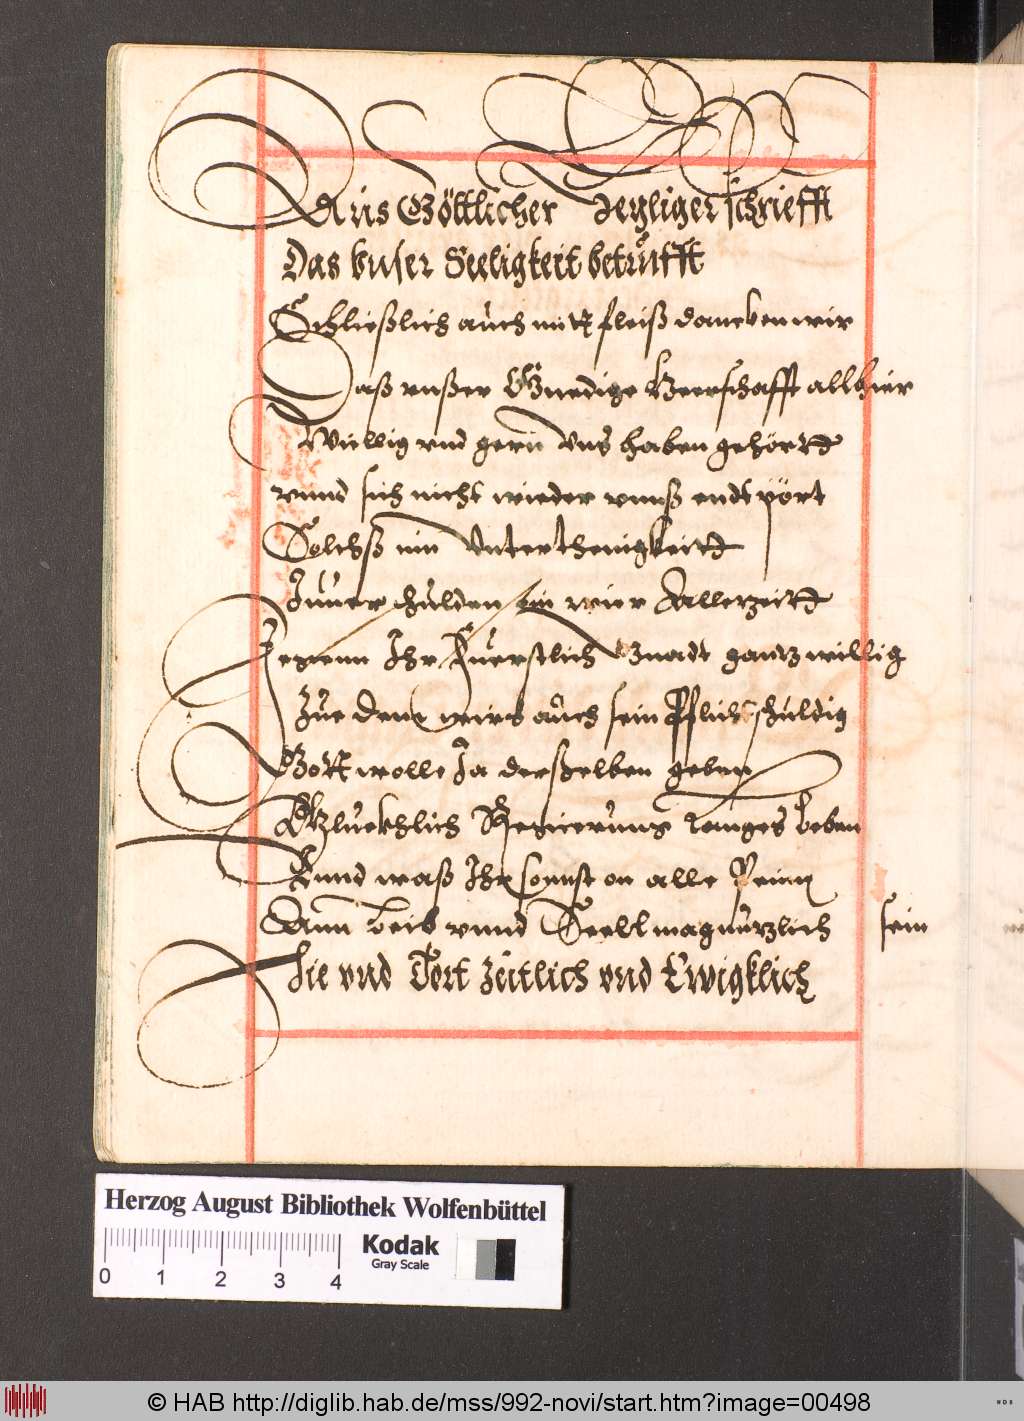 Aus Göttlicher Heyliger schriefft
Das vnser Seeligkeit betrüfft
Schließlich auch mitt fleiß dancken wir
Daß vnßer Gnedige Herrschafft allhier
Willig vnd gern Vns haben gehörtt
vnnd sich nicht wieder vnnß endtpört
Solchß inn Vnterthenigkeitt
Zuuer schulden sein wier Allerzeitt
Jegenn Ihr Fuerstlich Gnadt gantz willig
Zue dem wirs auch sein Pflicht schuldig
Gott wolle Ja derßelben geben
Glückhlich Regierung langes Leben
Vnnd waß Ihr sonnst on alle Pein
Ann Leib vnnd Seehl mag nützlich sein
Hie vnd Dort zeitlich vnd Ewigklich
Herzog August Bibliothek Wolfenbüttel
Kodak
Gray Scale
0 1 2 3 4
© HAB http://diglib.hab.de/mss/992-novi/start.htm?image=00498